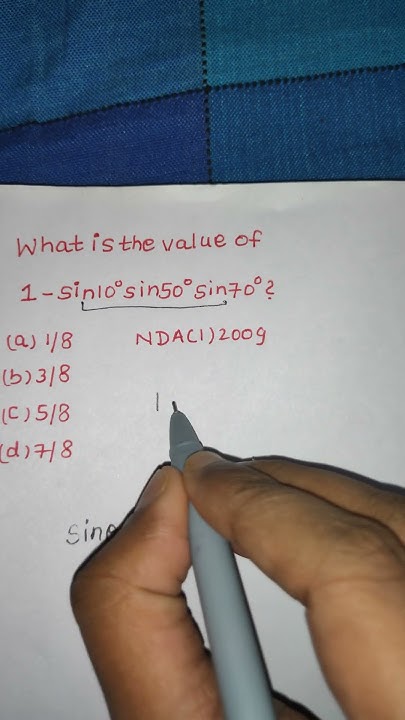 What is the value of
1-sin10°sin50°sin70°?
(a) 1/8 NDA(1)2009
(b) 3/8
(c) 5/8
(d) 7/8
1